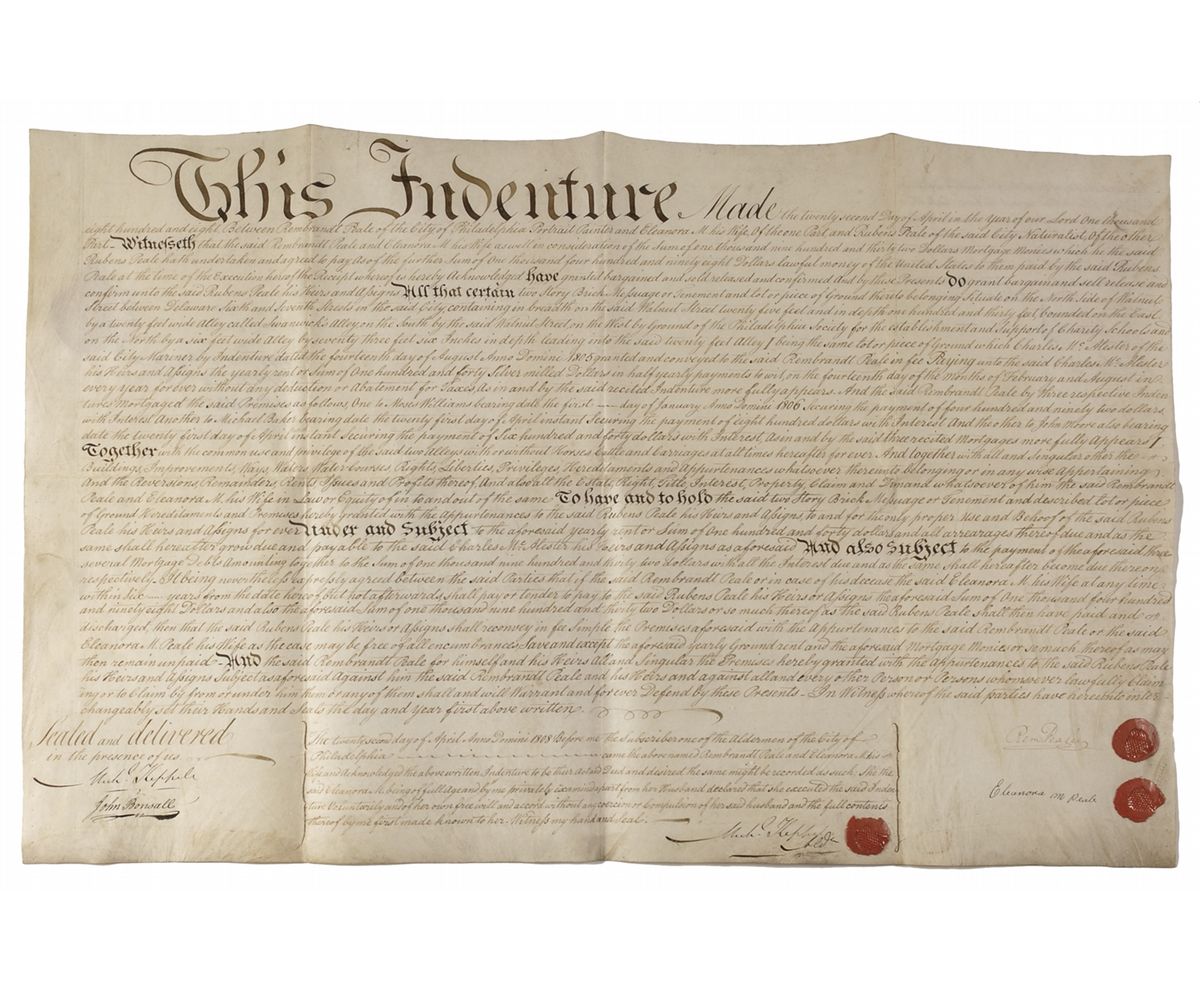 This Indenture Made the twenty second Day of April in the Year of our Lord One thousand
eight hundred and eight Between Rembrandt Peale of the City of Philadelphia Portrait Painter and Eleanora M. his Wife, Of the one Part and Rubens Peale of the said City Naturalist, Of the other
Part. Witnesseth that the said Rembrandt Peale and Eleanora M. his Wife as well in consideration of the Sum of one thousand nine hundred and thirty two Dollars Mortgage Monies which he the said
Rubens Peale hath undertaken and agreed to pay As of the further Sum of one thousand four hundred and ninety eight Dollars lawful money of the United States to them paid by the said Rubens
Peale at the time of the Execution hereof the Receipt whereof is hereby Acknowledged have granted bargained and sold released and confirmed And by these Presents Do grant bargain and sell release and
confirm unto the said Rubens Peale his Heirs and Assigns All that certain two Story Brick Messuage or Tenement and Lot or piece of Ground thereto belonging Situate on the North Side of Walnut
Street between Delaware Sixth and Seventh Streets in the said City, containing in breadth on the said Walnut Street twenty five feet and in depth one hundred and thirty feet bounded on the East
by a twenty feet wide Alley called Swanwick's Alley, on the South by the said Walnut Street, on the West by Ground of the Philadelphia Society for the establishment and Support of Charity Schools and
on the North by a six feet wide Alley by seventy three feet six Inches in depth leading into the said twenty feet Alley / being the same Lot or piece of ground which Charles Mc. Alester of the
said City Mariner by Indenture dated the fourteenth day of August Anno Domini 1805 granted and conveyed to the said Rembrandt Peale in fee Paying unto the said Charles Mc. Alester
his Heirs and Assigns the yearly rent or Sum of One hundred and forty Silver milled Dollars in half yearly payments to wit, on the fourteenth day of the Months of February and August in
every year for ever without any deduction or Abatement for Taxes, As in and by the said recited Indenture more fully appears. And the said Rembrandt Peale by three respective Inden
tures Mortgaged the said Premises as follows, One to Moses Williams bearing date the first day of January Anno Domini 1806 Securing the payment of four hundred and ninety two dollars
with Interest Another to Michael Baker bearing date the twenty first day of April instant Securing the payment of eight hundred dollars with Interest And the other to John Moore also bearing
date the twenty first day of April instant Securing the payment of Six hundred and forty dollars with Interest, As in and by the said three recited Mortgages more fully Appears /
Together with the common use and privilege of the said two Alleys with or without Horses Cattle and Carriages at all times hereafter for ever. And together with all and Singular other the
Buildings, Improvements, Ways, Waters, Water Courses, Rights, Liberties, Privileges, Hereditaments and Appurtenances whatsoever thereunto belonging or in any wise Appertaining
And the Reversions, Remainders, Rents, Issues and Profits thereof, And also all the Estate, Right, Title, Interest, Property, Claim and Demand whatsoever of him the said Rembrandt
Peale and Eleanora M. his Wife in Law or Equity of in to and out of the same To have and to hold the said two Story Brick Messuage or Tenement and described Lot or piece
of Ground Hereditaments and Premises hereby granted with the Appurtenances to the said Rubens Peale his Heirs and Assigns, to and for the only proper Use and Behoof of the said Rubens
Peale his Heirs and Assigns for ever Under and Subject to the aforesaid yearly rent or Sum of One hundred and forty dollars and all arrearages thereof due and as the
same shall hereafter grow due and payable to the said Charles Mc. Alester his Heirs and Assigns as aforesaid And also Subject to the payment of the aforesaid three
several Mortgage Debts Amounting together to the Sum of one thousand nine hundred and thirty two dollars with all the Interest due and as the Same shall hereafter become due thereon
respectively. It being nevertheless expressly agreed between the said Parties that if the said Rembrandt Peale or in case of his decease the said Eleanora M. his Wife at any time
within Six years from the date hereof, but not afterwards, shall pay or tender to pay to the said Rubens Peale his Heirs or Assigns the aforesaid Sum of One thousand four hundred
and ninety eight Dollars and also the aforesaid Sum of one thousand nine hundred and thirty two Dollars or so much thereof as the said Rubens Peale shall then have paid and
discharged, then that the said Rubens Peale his Heirs or Assigns shall reconvey in fee Simple the Premises aforesaid with the Appurtenances to the said Rembrandt Peale or the said
Eleanora M. Peale his Wife as the case may be free of all encumbrances Save and except the aforesaid yearly Ground rent and the aforesaid Mortgage Monies or so much thereof as may
then remain unpaid And the said Rembrandt Peale for himself and his Heirs All and Singular the Premises hereby granted with the Appurtenances to the said Rubens Peale
his Heirs and Assigns Subject as aforesaid Against him the said Rembrandt Peale and his Heirs and against all and every other Person or Persons whomsoever lawfully Claim
ing or to Claim by from or under him them or any of them shall and will Warrant and for ever Defend by these Presents. In Witness whereof the said parties have hereunto inter
changeably set their Hands and Seals the day and year first above written.
Sealed and delivered
in the presence of us
Mich. Keppele
John Bonsall
The twenty second day of April Anno Domini 1808 Before me the Subscriber one of the Aldermen of the City of
Philadelphia came the above named Rembrandt Peale and Eleanora M. his
Wife and Acknowledged the above written Indenture to be their Act and Deed and desired the same might be recorded as such. She the
said Eleanora M. being of full age and by me privately Examined apart from her Husband declared that she executed the said Inden
ture Voluntarily and of her own free will and accord without any coercion or Compulsion of her said husband and the full contents
thereof by me first made known to her. Witness my hand and Seal.
Mich. Keppele
Ald.
Rem. Peale
Eleanora M Peale